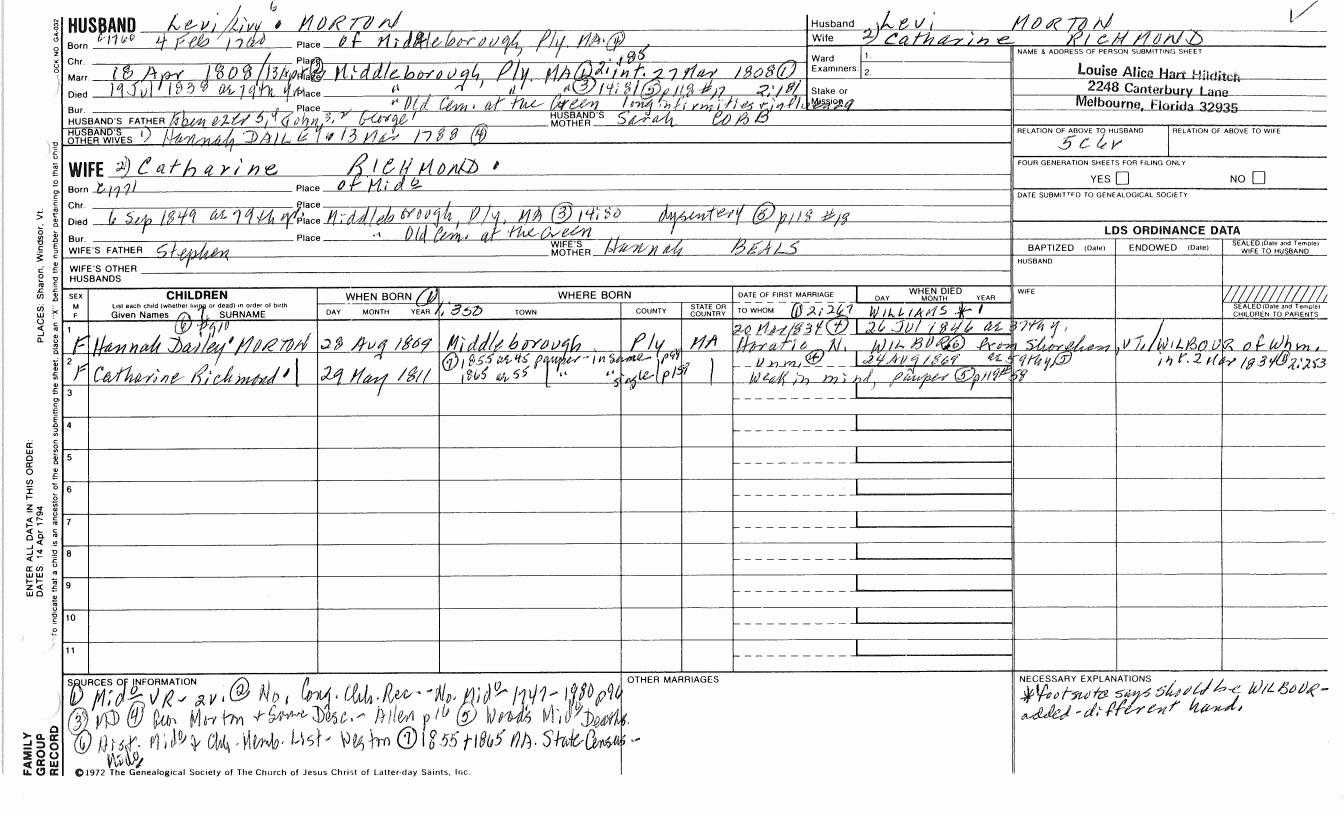 HUSBAND Levi/Livy 6 MORTON
Born c1760 4 Feb 1760 Place of Middleborough, Ply. MA. 4
Chr. Place
Marr 18 Apr 1808/13 Apr 2 Place Middleborough, Ply, MA 1 2:185 int. 27 Mar 1808 1
Died 19 Jul 1838 ae 79th yr Place " " " 3 14:81 5 p118 #17 2:181
Bur. Place " Old Cem. at the Green long infirmities + influenza
HUSBAND'S FATHER Ebenezer 5, 4 John, 3, 2 George
HUSBAND'S MOTHER Sarah COBB
HUSBAND'S OTHER WIVES 1) Hannah DAILEY 13 Mar 1788 4
Husband Levi MORTON
Wife 2) Catharine RICHMOND
Ward 1.
Examiners 2.
Stake or Mission
NAME & ADDRESS OF PERSON SUBMITTING SHEET
Louise Alice Hart Hilditch
2248 Canterbury Lane
Melbourne, Florida 32935
RELATION OF ABOVE TO HUSBAND RELATION OF ABOVE TO WIFE
5C6r
FOUR GENERATION SHEETS FOR FILING ONLY
YES NO
DATE SUBMITTED TO GENEALOGICAL SOCIETY
WIFE 2) Catharine RICHMOND
Born c1771 Place of Mido
Chr. Place
Died 6 Sep 1849 ae 79th yr Place Middleborough, Ply, MA 3 14:80 dysentery 5 p118 #18
Bur. Place " Old Cem. at the Green
WIFE'S FATHER Stephen
WIFE'S MOTHER Hannah BEALS
WIFE'S OTHER HUSBANDS
LDS ORDINANCE DATA
BAPTIZED (Date) ENDOWED (Date) SEALED (Date and Temple) WIFE TO HUSBAND
HUSBAND
WIFE
SEALED (Date and Temple) CHILDREN TO PARENTS
SEX M F
CHILDREN
List each child (whether living or dead) in order of birth
Given Names SURNAME
WHEN BORN 1
DAY MONTH YEAR 1:350
WHERE BORN
TOWN COUNTY STATE OR COUNTRY
DATE OF FIRST MARRIAGE
TO WHOM 1 2:267
WHEN DIED
DAY MONTH YEAR
WILLIAMS *1
6 #910
1 F Hannah Dailey MORTON 28 Aug 1809 Middleborough Ply MA 20 Mar 1834 4 26 Jul 1846 ae 37th y.
Horatio N. WILBUR 6 from Shoreham, VT/WILBOUR of Whm.
int. 2 Mar 1834 1 2:253
2 F Catharine Richmond 29 May 1811 7 1855 ae 45 pauper - in same p49 unm. 4 24 AUG 1869 ae 59th ay 5
1865 ae 55 " " single p159 Weak in mind, pauper 5 p119 #58
3
4
5
6
7
8
9
10
11
SOURCES OF INFORMATION
1 Mido VR - 2v. 2 No. Cong. Chh. Rec. - No. Mido 1747-1980 p96
3 MD 4 Geo. Morton + Some Desc. - Allen p16 5 Wood's Mido Deaths.
6 Hist. Mido + Chh. Memb. List - Weston 7 1855 + 1865 MA. State Census -
Mido
OTHER MARRIAGES
NECESSARY EXPLANATIONS
*footnote says should be WILBOUR -
added - different hand.
©1972 The Genealogical Society of The Church of Jesus Christ of Latter-day Saints, Inc.
FAMILY GROUP RECORD
ENTER ALL DATA IN THIS ORDER:
DATES 14 Apr 1794
PLACES: Sharon, Windsor, Vt.
To indicate that a child is an ancestor of the person submitting the sheet, place an "X" behind the number pertaining to that child